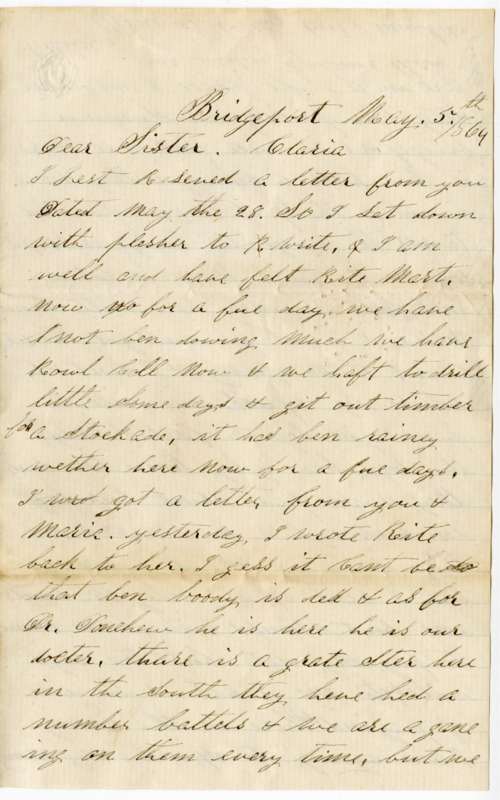 Bridgeport May. 5th /864
Dear Sister. Claria
I Jest Reseved a letter from you
Dated May the 28. So I set down
with plesher to Rwrite, & I am
well and have felt Rite Mart.
now for a fue day. we have
not ben dowing much we have
Rowl Coll now & we haft to drill
little some days & git out timber
for a stockade, it has ben rainey
wether here now for a fue days.
I got a letter from you &
Maria. yesterday, I wrote Rite
back to her. I gess it Cant be
that ben boody is ded & as for
Dr. he is here he is our
docter. thare is a grate Ster here
in the South they have hed a
number battels & we are a gane
ing on them every time, but we